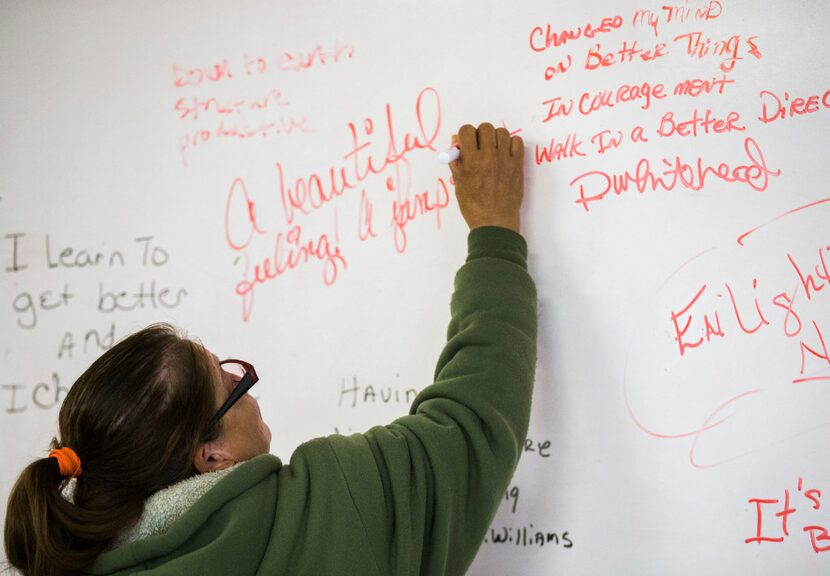 Down to earth
structure
productive
A beautiful
feeling! A "jump"
CHANGED MY MIND
on Better Things
IN COURAGE MENT
WALK IN A Better Direc
Pwhitehead
I learn To
get better
and
I Ch
HAVING
Williams
Enligh
N
It's
B